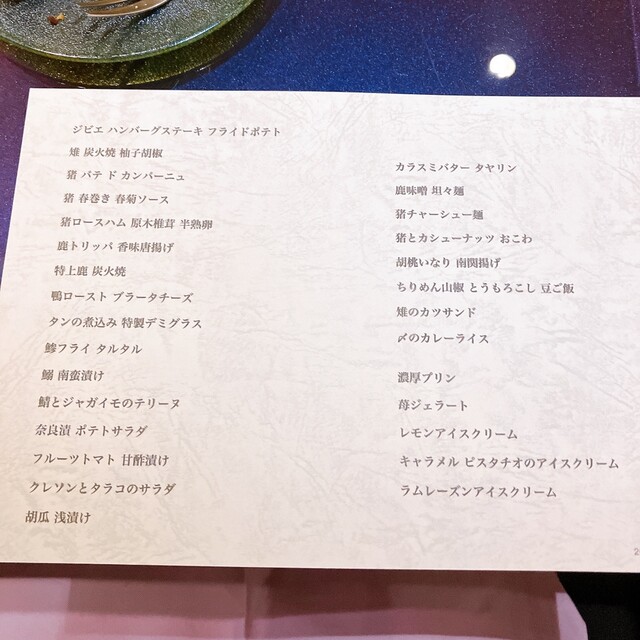 ジビエ ハンバーグステーキ フライドポテト
雉 炭火焼 柚子胡椒
猪 パテ ド カンパーニュ
猪 春巻き 春菊ソース
猪ロースハム 原木椎茸 半熟卵
鹿トリッパ 香味唐揚げ
特上鹿 炭火焼
鴨ロースト ブラータチーズ
タンの煮込み 特製デミグラス
鯵フライ タルタル
鰯 南蛮漬け
鯖とジャガイモのテリーヌ
奈良漬 ポテトサラダ
フルーツトマト 甘酢漬け
クレソンとタラコのサラダ
胡瓜 浅漬け
カラスミバター タヤリン
鹿味噌 坦々麺
猪チャーシュー麺
猪とカシューナッツ おこわ
胡桃いなり 南関揚げ
ちりめん山椒 とうもろこし 豆ご飯
雉のカツサンド
〆のカレーライス
濃厚プリン
苺ジェラート
レモンアイスクリーム
キャラメル ピスタチオのアイスクリーム
ラムレーズンアイスクリーム